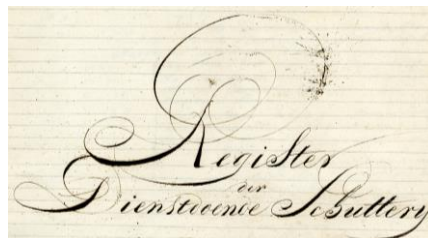 Register
der
Dienstdoende Schuttery